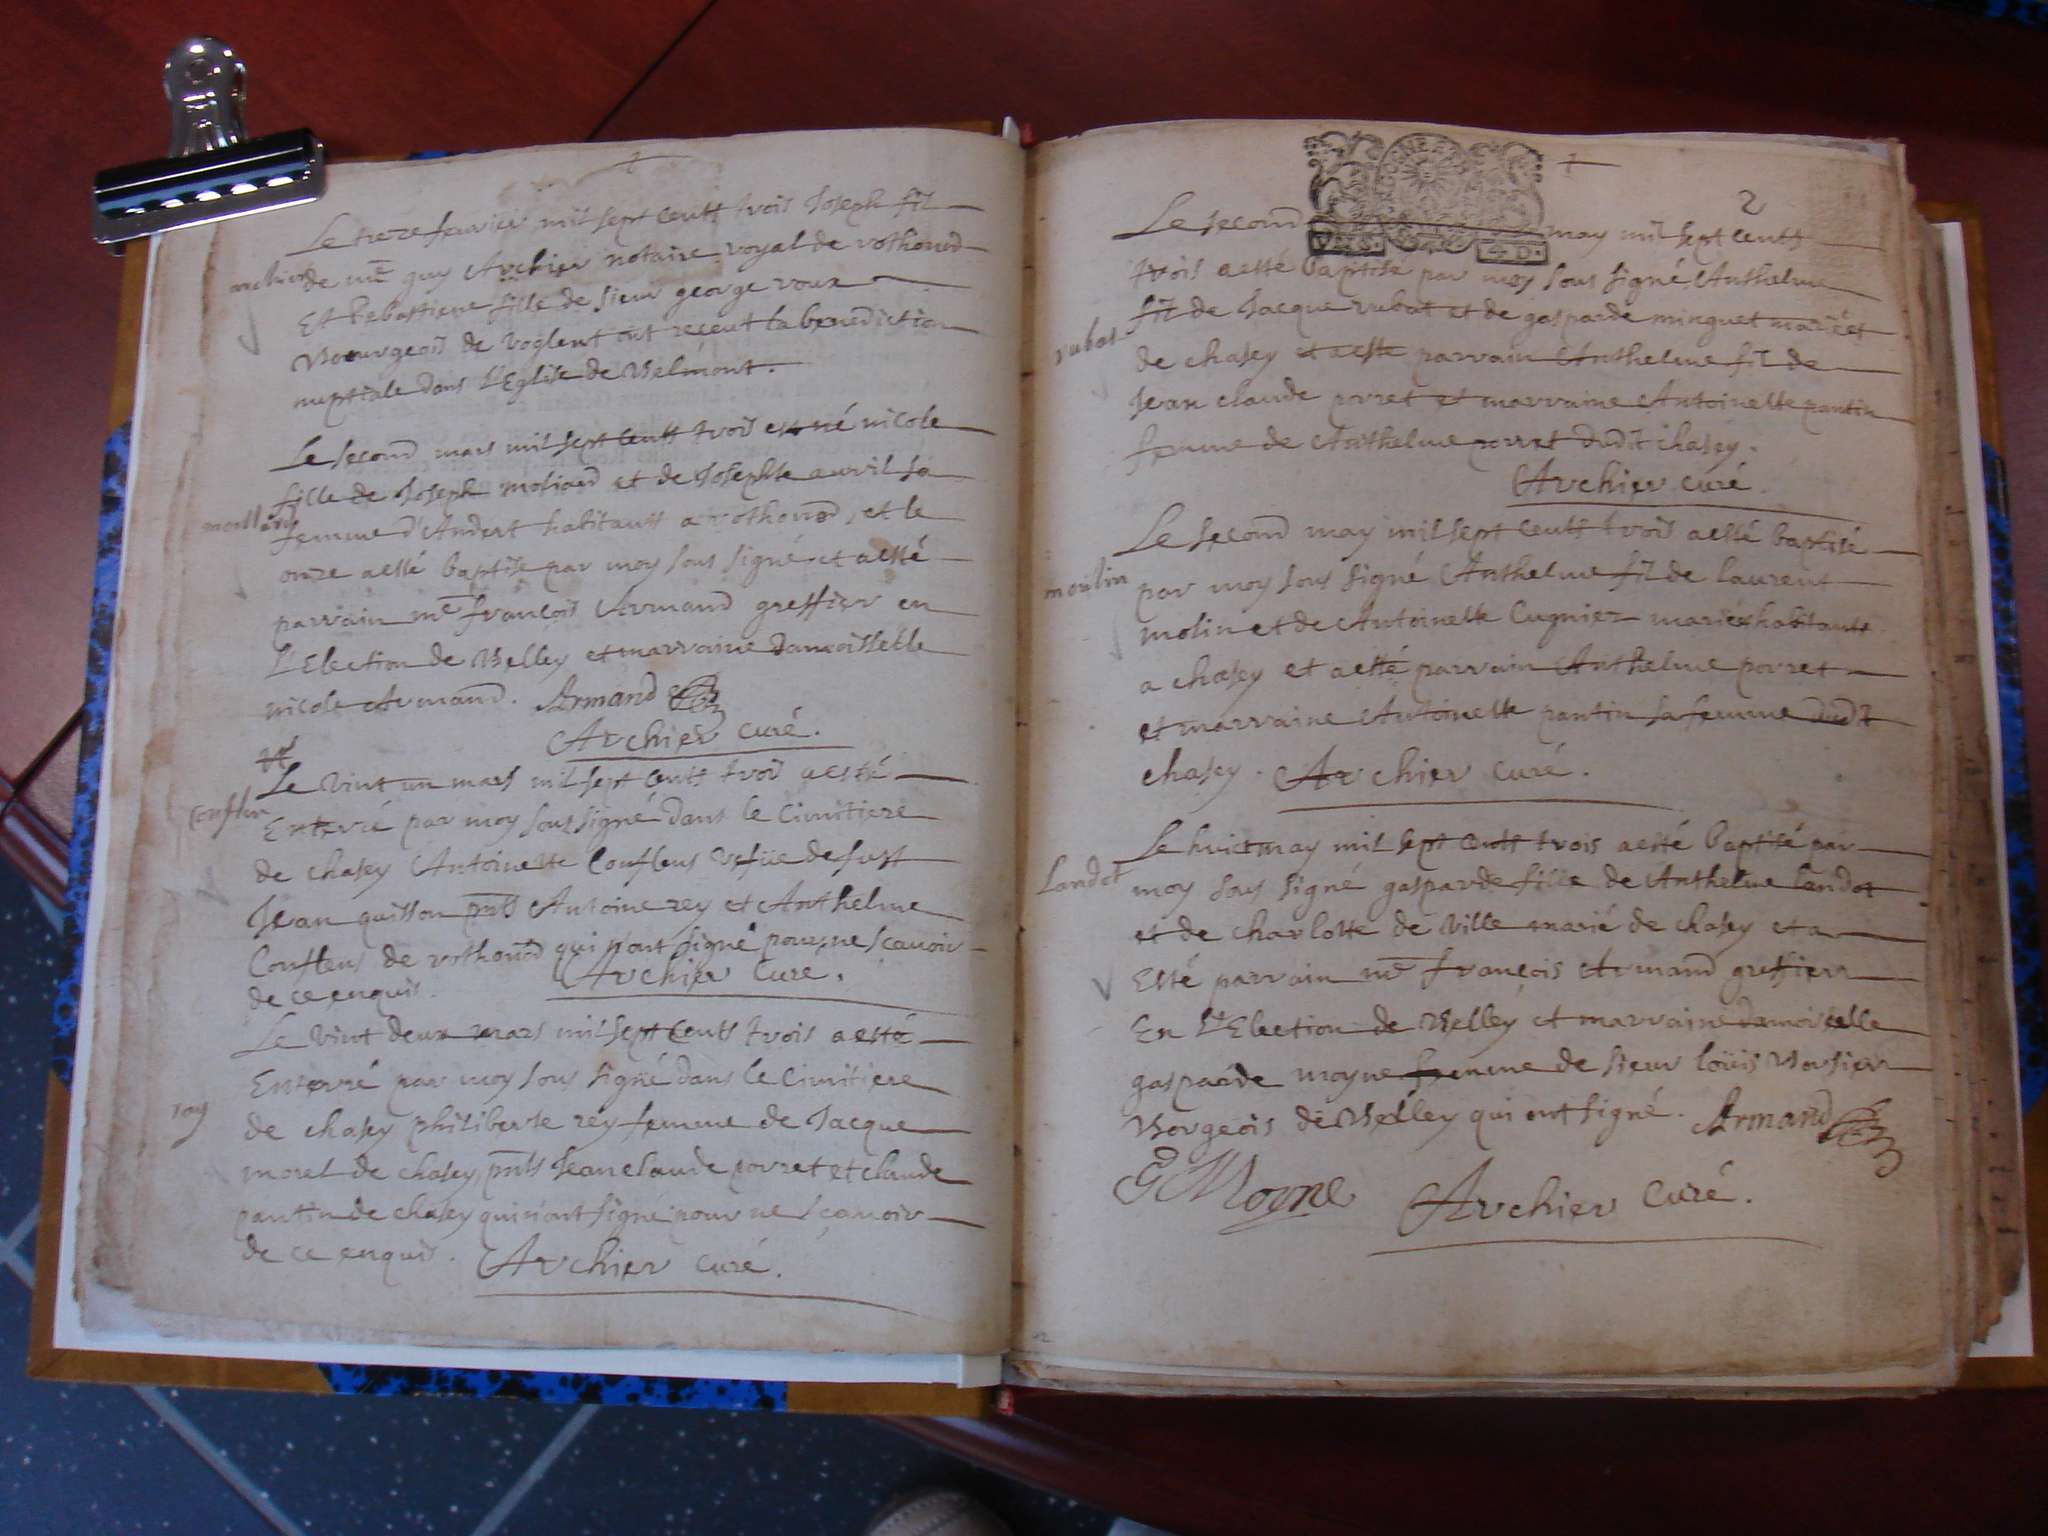 Le treze fevrier mil sept centt trois Joseph fil
archier de me guy Archier notaire royal de rothonod
Et Sebastiene fille de sieur george roux
Bourgeois de voglent ont reçeut la benediction
nuptiale dans l'Eglise de Belmont.
Le second mars mil sept centt trois est né nicole
fille de Joseph moliard et de Josephte avril sa
femme d'Andert habitantt a rothonod, et le
onze a esté baptise par moy sous signé et a esté
parrain me françois Armand greffier en
L'Election de Belley et marraine damoisselle
nicole Armand. Armand
Archier curé.
Le vint un mars mil sept centt trois a esté
Enterré par moy sous signé dans le Cimitiere
de chasey Antoinette Conflens vefüe de fust
Jean quisson pntt Antoine rey et Anthelme
Conflens de rothonod qui n'ont signé pour ne sçavoir
de ce enquis. Archier Curé.
Le vint deux mars mil sept centt trois a esté
Enterré par moy sous signé dans le Cimitiere
rey
de chasey philiberte rey femme de Jacque
morel de chasey, pntt Jean claude porret et claude
pantin de chasey qui n'ont signé pour ne sçavoir
de ce enquis. Archier curé.
2
Le second may mil sept centt
trois a esté baptisé par moy sous signé Anthelme
fil de Jacque rubat et de gasparde minguet mariés
rubat
de chasey et a esté parrain Anthelme fil de
Jean claude porret et marraine Antoinette pantin
femme de Anthelme porret dudt chasey.
Archier curé.
Le second may mil sept centt trois a esté baptisé
moulin par moy sous signé Anthelme fil de laurent
molin et de Antoinette Cugnier mariés habitantt
a chasey et a esté parrain Anthelme porret
et marraine Antoinette pantin sa femme dudt
chasey. Archier curé.
Le huict may mil sept centt trois a esté baptisé par
Landot moy sous signé gasparde fille de Anthelme landot
et de charlotte de ville marié de chasey et a
Esté parrain me françois Armand greffier
En L'Election de Belley et marraine damoiselle
gasparde moyne femme de sieur loüis
Borgeois de Belley qui ont signé. Armand
G Moyne Archier Curé.